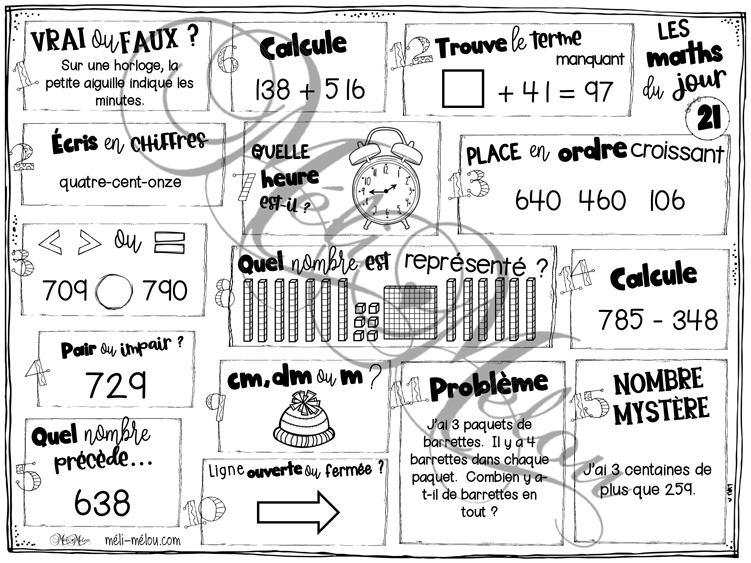 VRAI ou FAUX ?
1
Sur une horloge, la
petite aiguille indique les
minutes.
2
Écris en CHIFFRES
quatre-cent-onze
3
< > ou =
709 790
4
Pair ou impair ?
729
5
Quel nombre
précède...
638
6
Calcule
138 + 516
7
QUELLE
heure
est-il ?
8
Quel nombre est représenté ?
9
cm, dm ou m ?
10
Ligne ouverte ou fermée ?
11
Problème
J'ai 3 paquets de
barrettes. Il y a 4
barrettes dans chaque
paquet. Combien y a-
t-il de barrettes en
tout ?
12
Trouve le terme
manquant
+ 41 = 97
13
PLACE en ordre croissant
640 460 106
14
Calcule
785 - 348
15
NOMBRE
MYSTÈRE
J'ai 3 centaines de
plus que 259.
LES
maths
du jour
21
Méli Mélou
méli-mélou.com
Méli Mélou